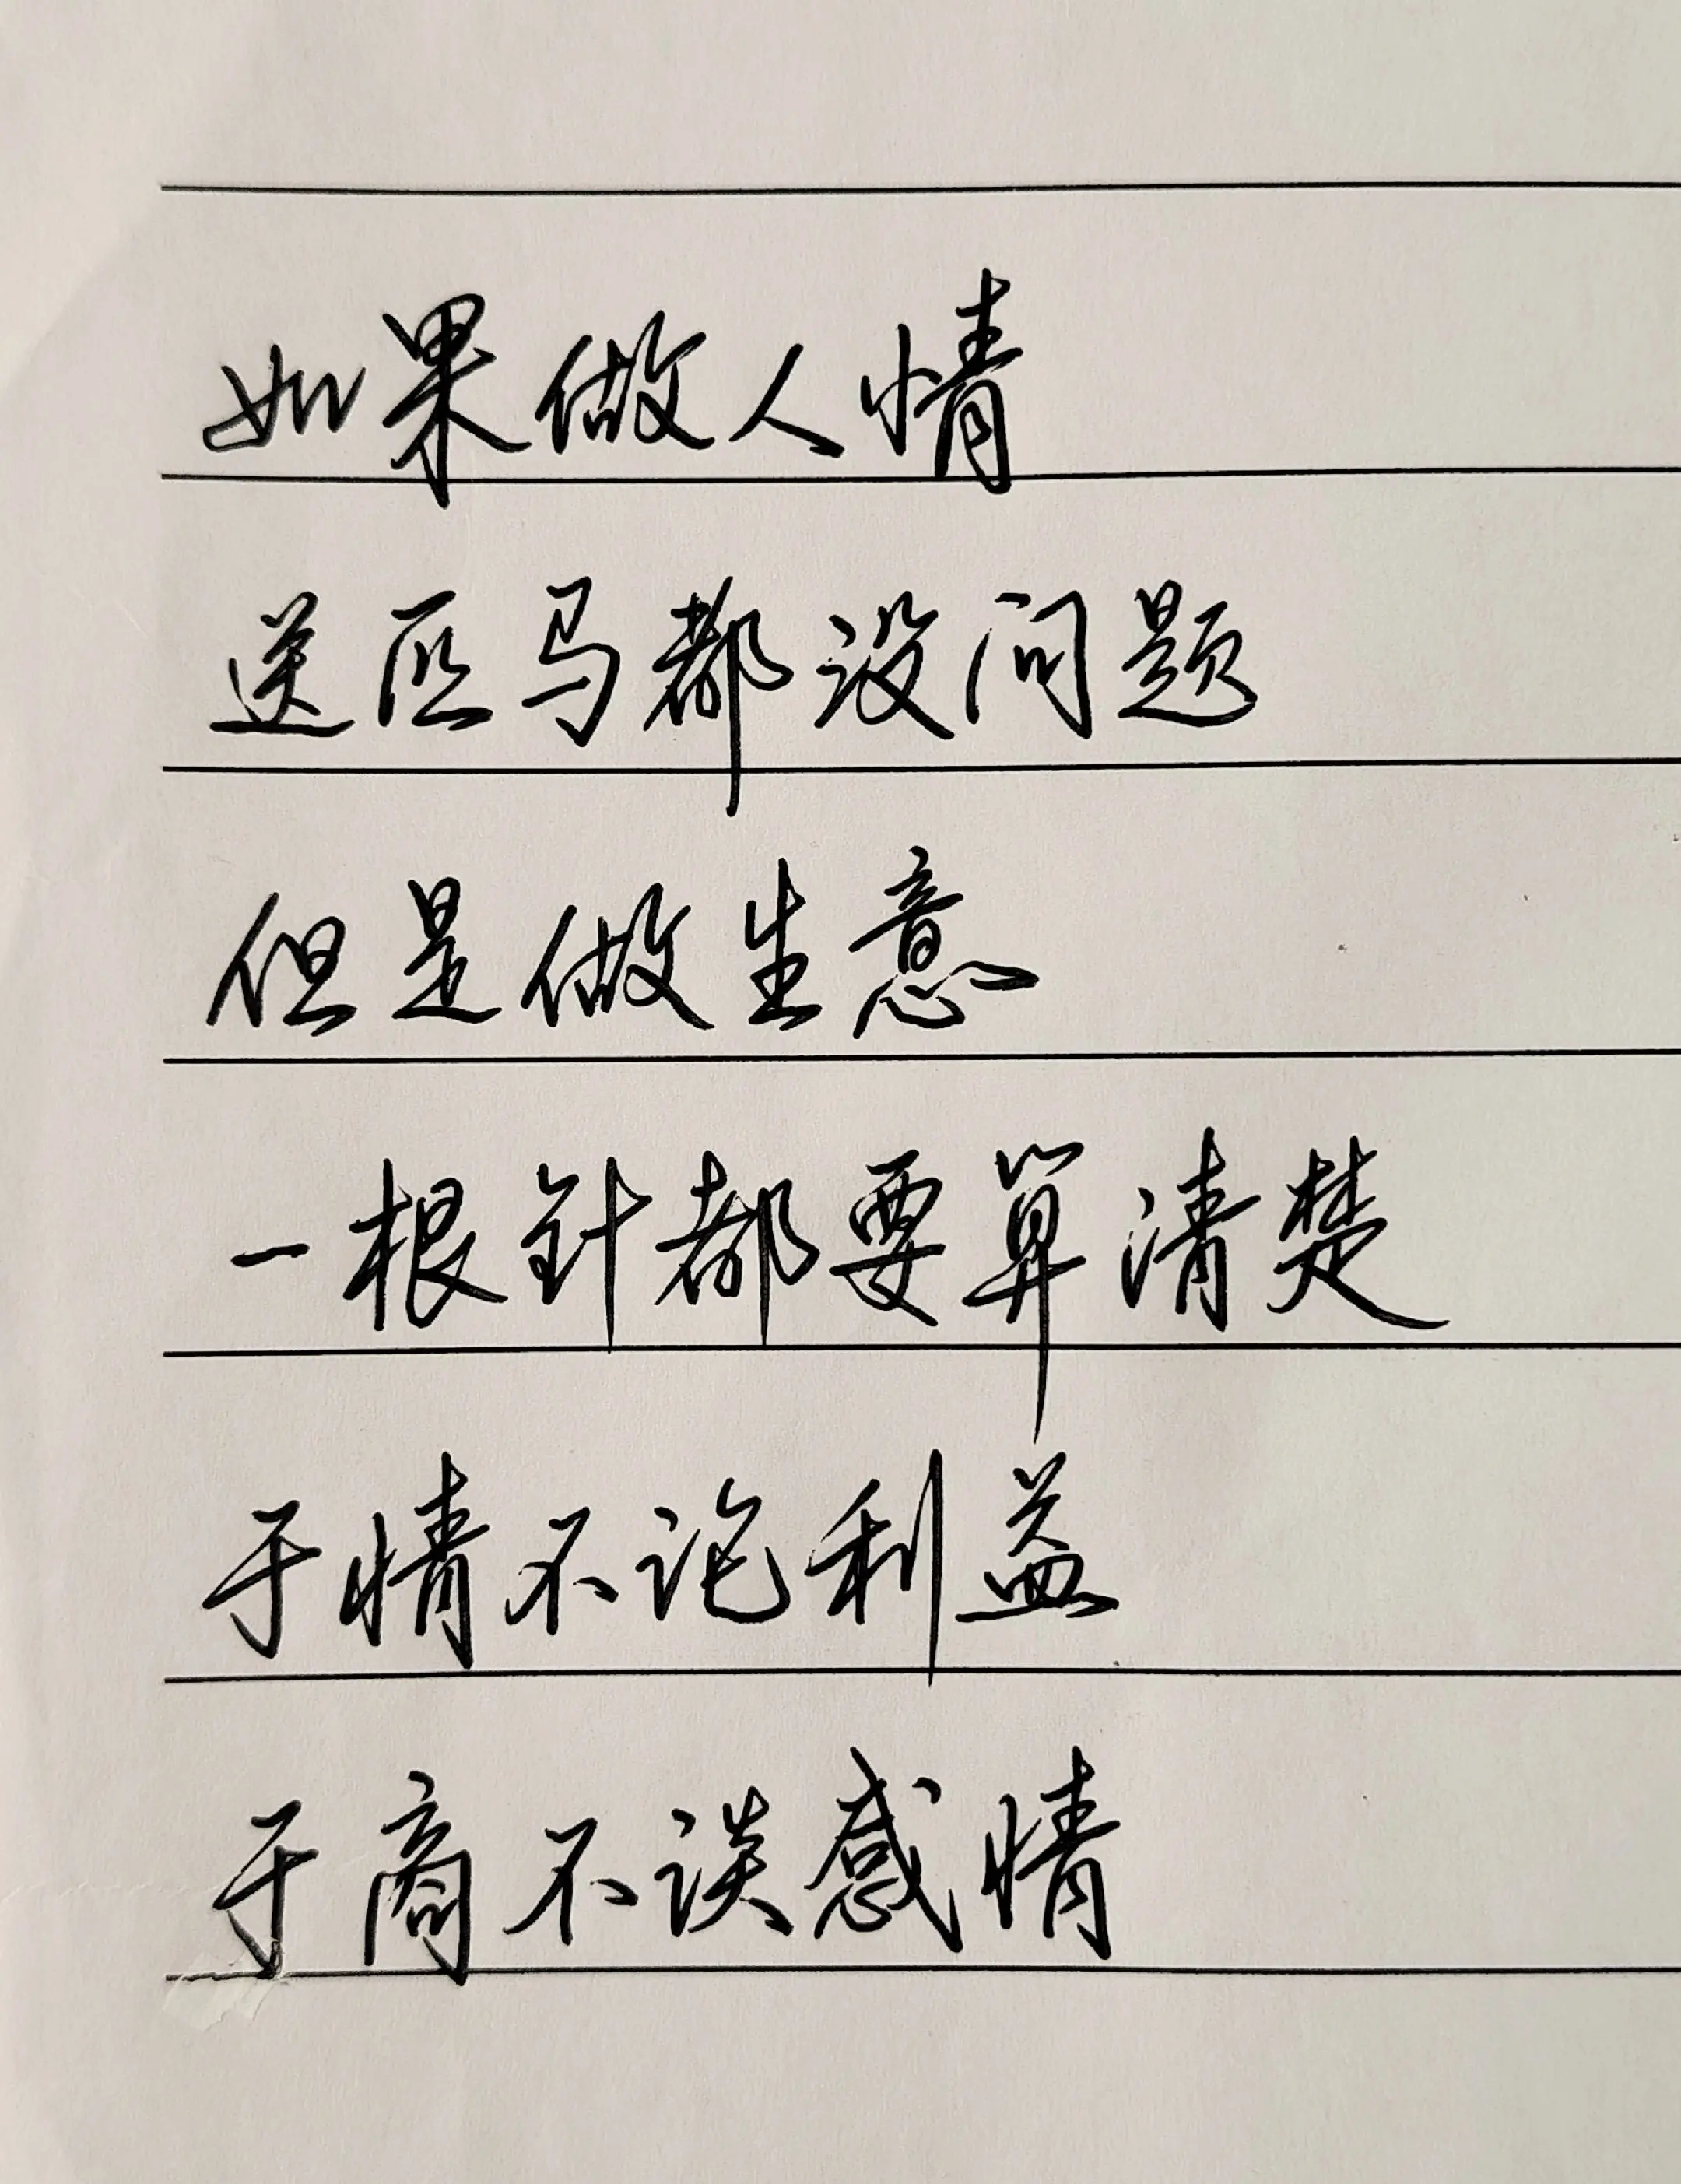 如果做人情
送匹马都没问题
但是做生意
一根针都要算清楚
于情不论利益
于商不谈感情